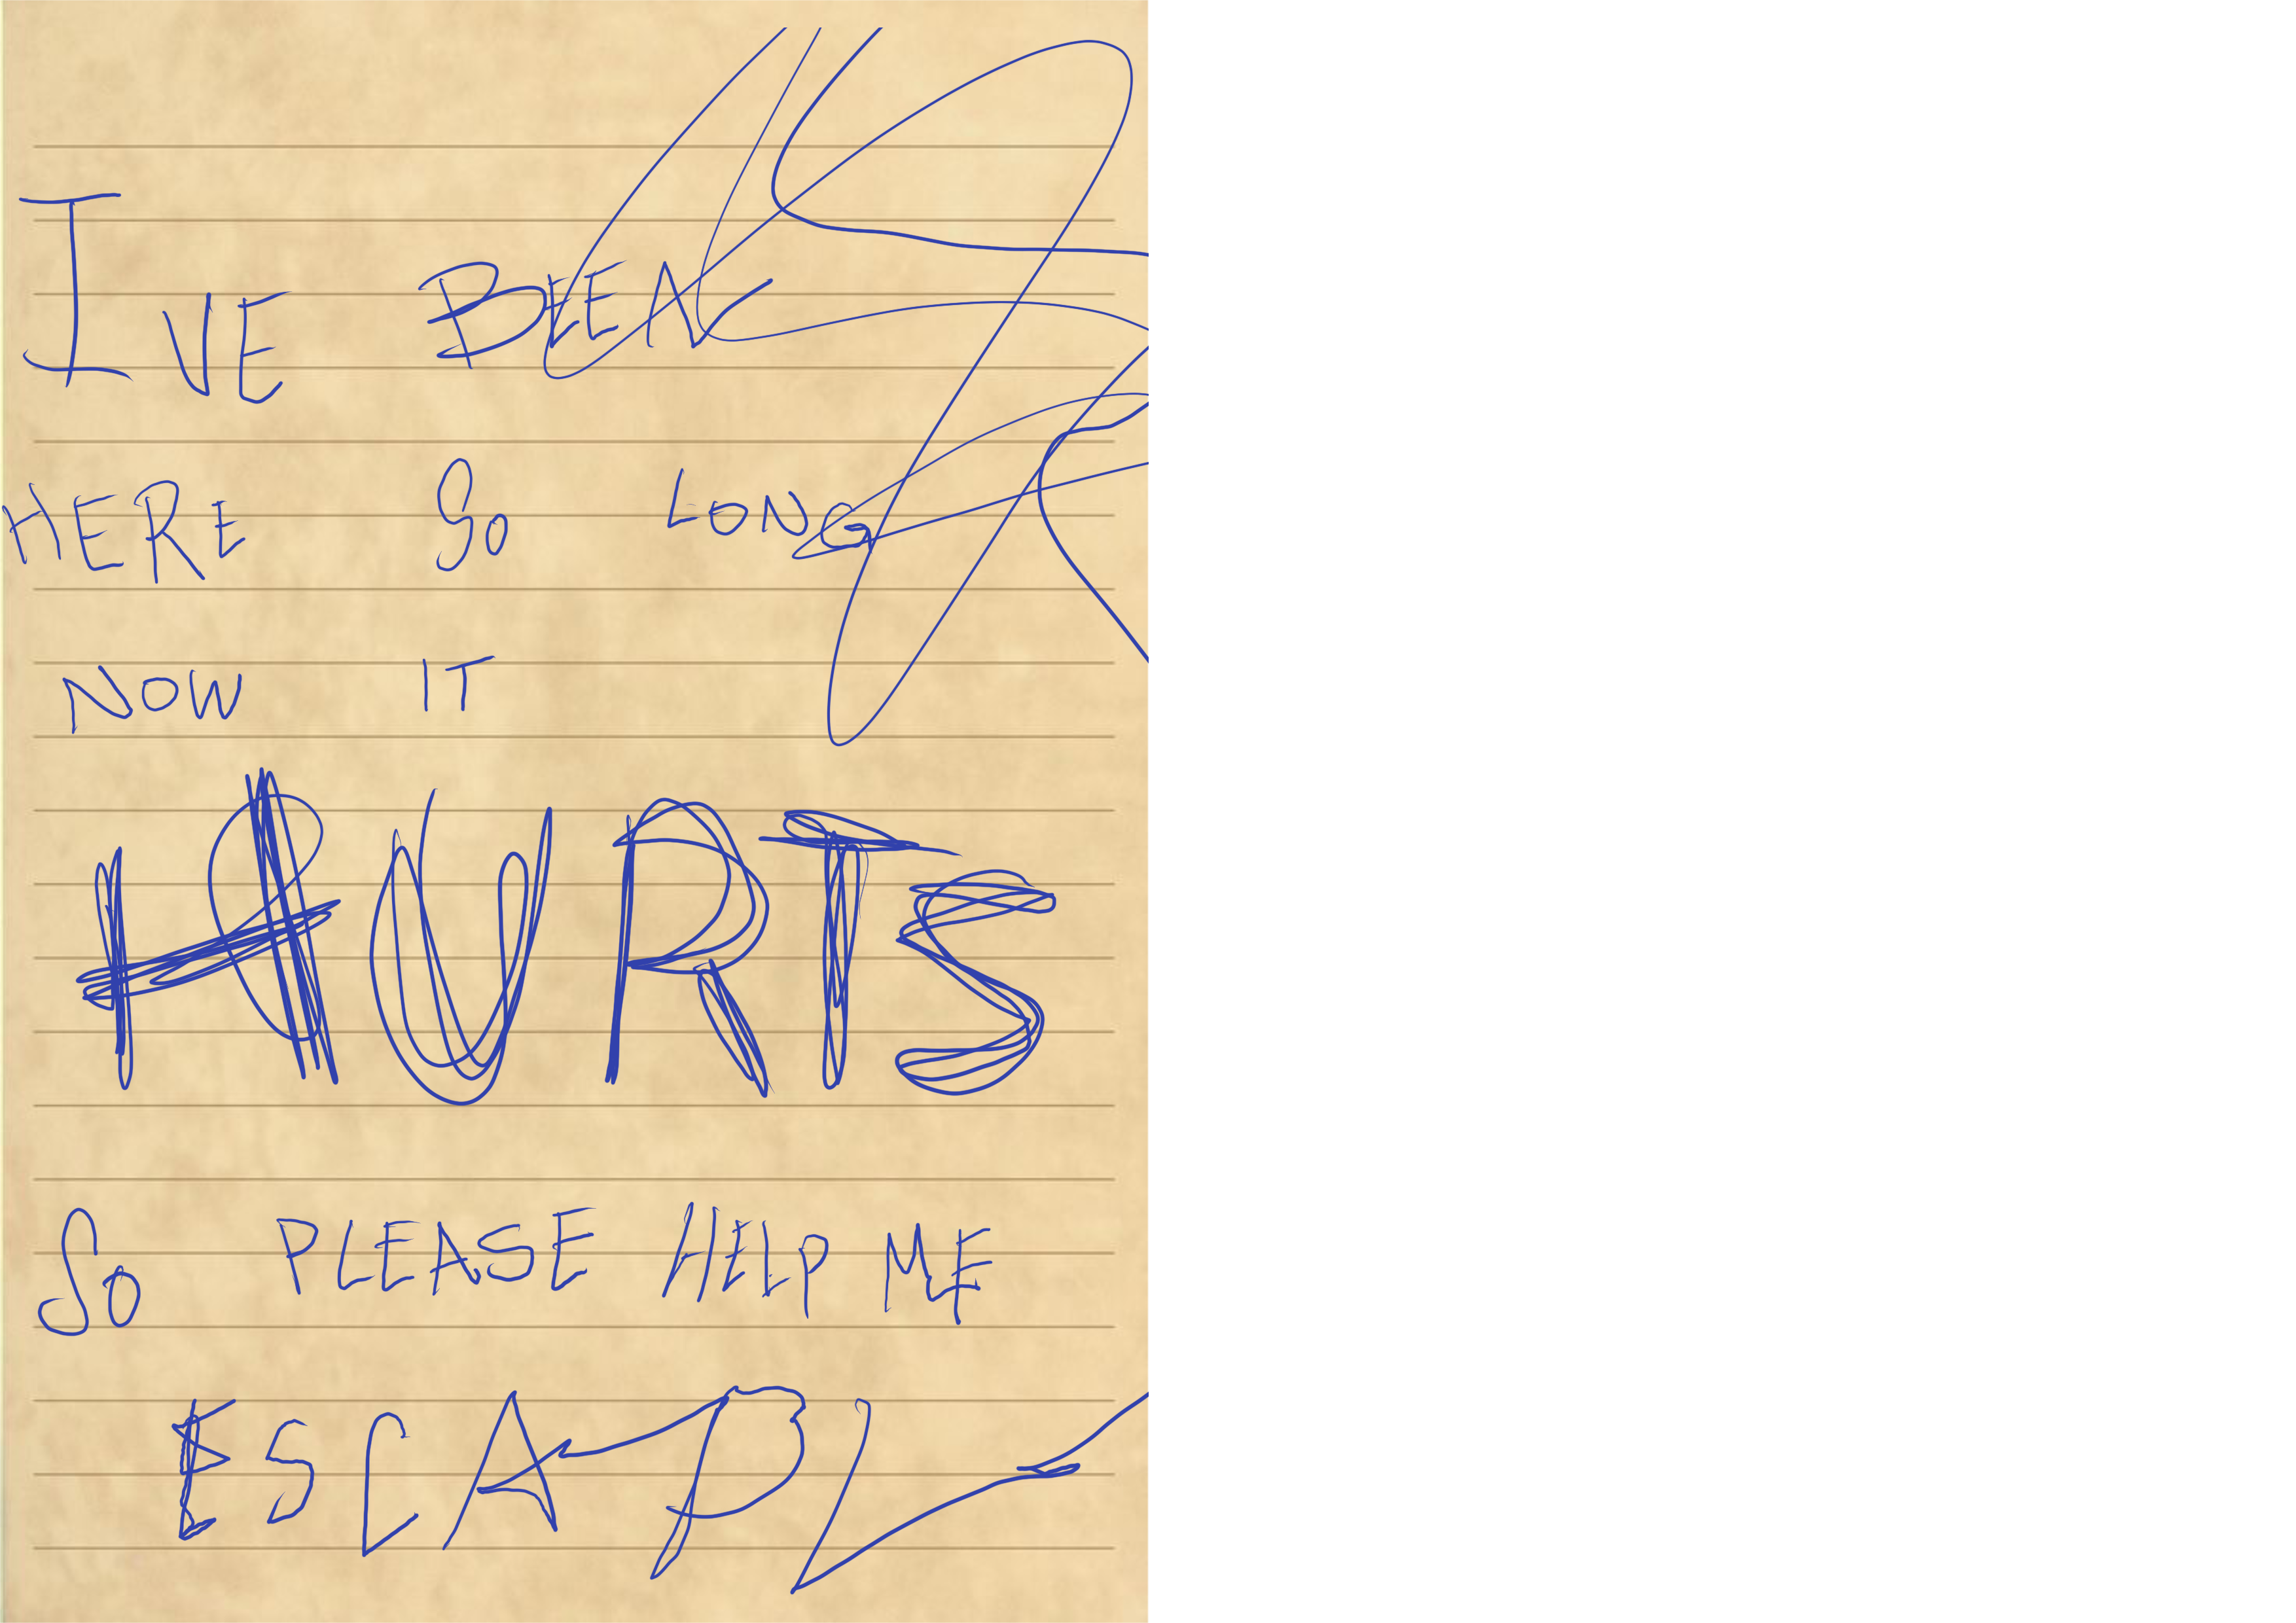 IVE BEEN
HERE SO LONG
NOW IT
HURTS
SO PLEASE HELP ME
ESCAPE